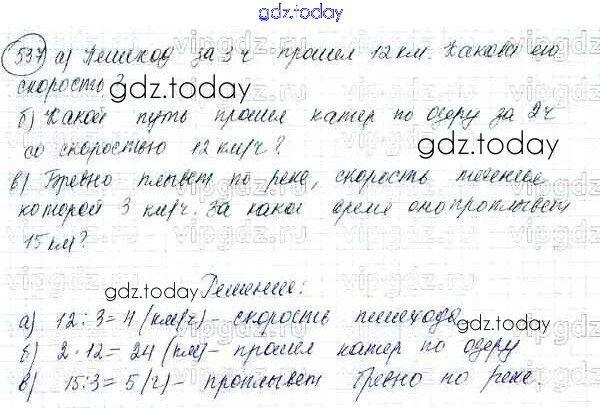 gdz.today
537 а) Пешеход за 3 ч прошел 12 км. Какова его
скорость?
gdz.today
б) Какой путь прошел катер по озеру за 2ч
со скоростью 12 км/ч?
gdz.today
в) Бревно плывет по реке, скорость течения
которой 3 км/ч. За какое время оно проплывет
15 км?
Решение:
gdz.today
а) 12:3=4 (км/ч) - скорость пешехода
gdz.today
б) 2·12=24 (км) - прошел катер по озеру
в) 15:3=5 (ч) - проплывет бревно по реке.
gdz.today